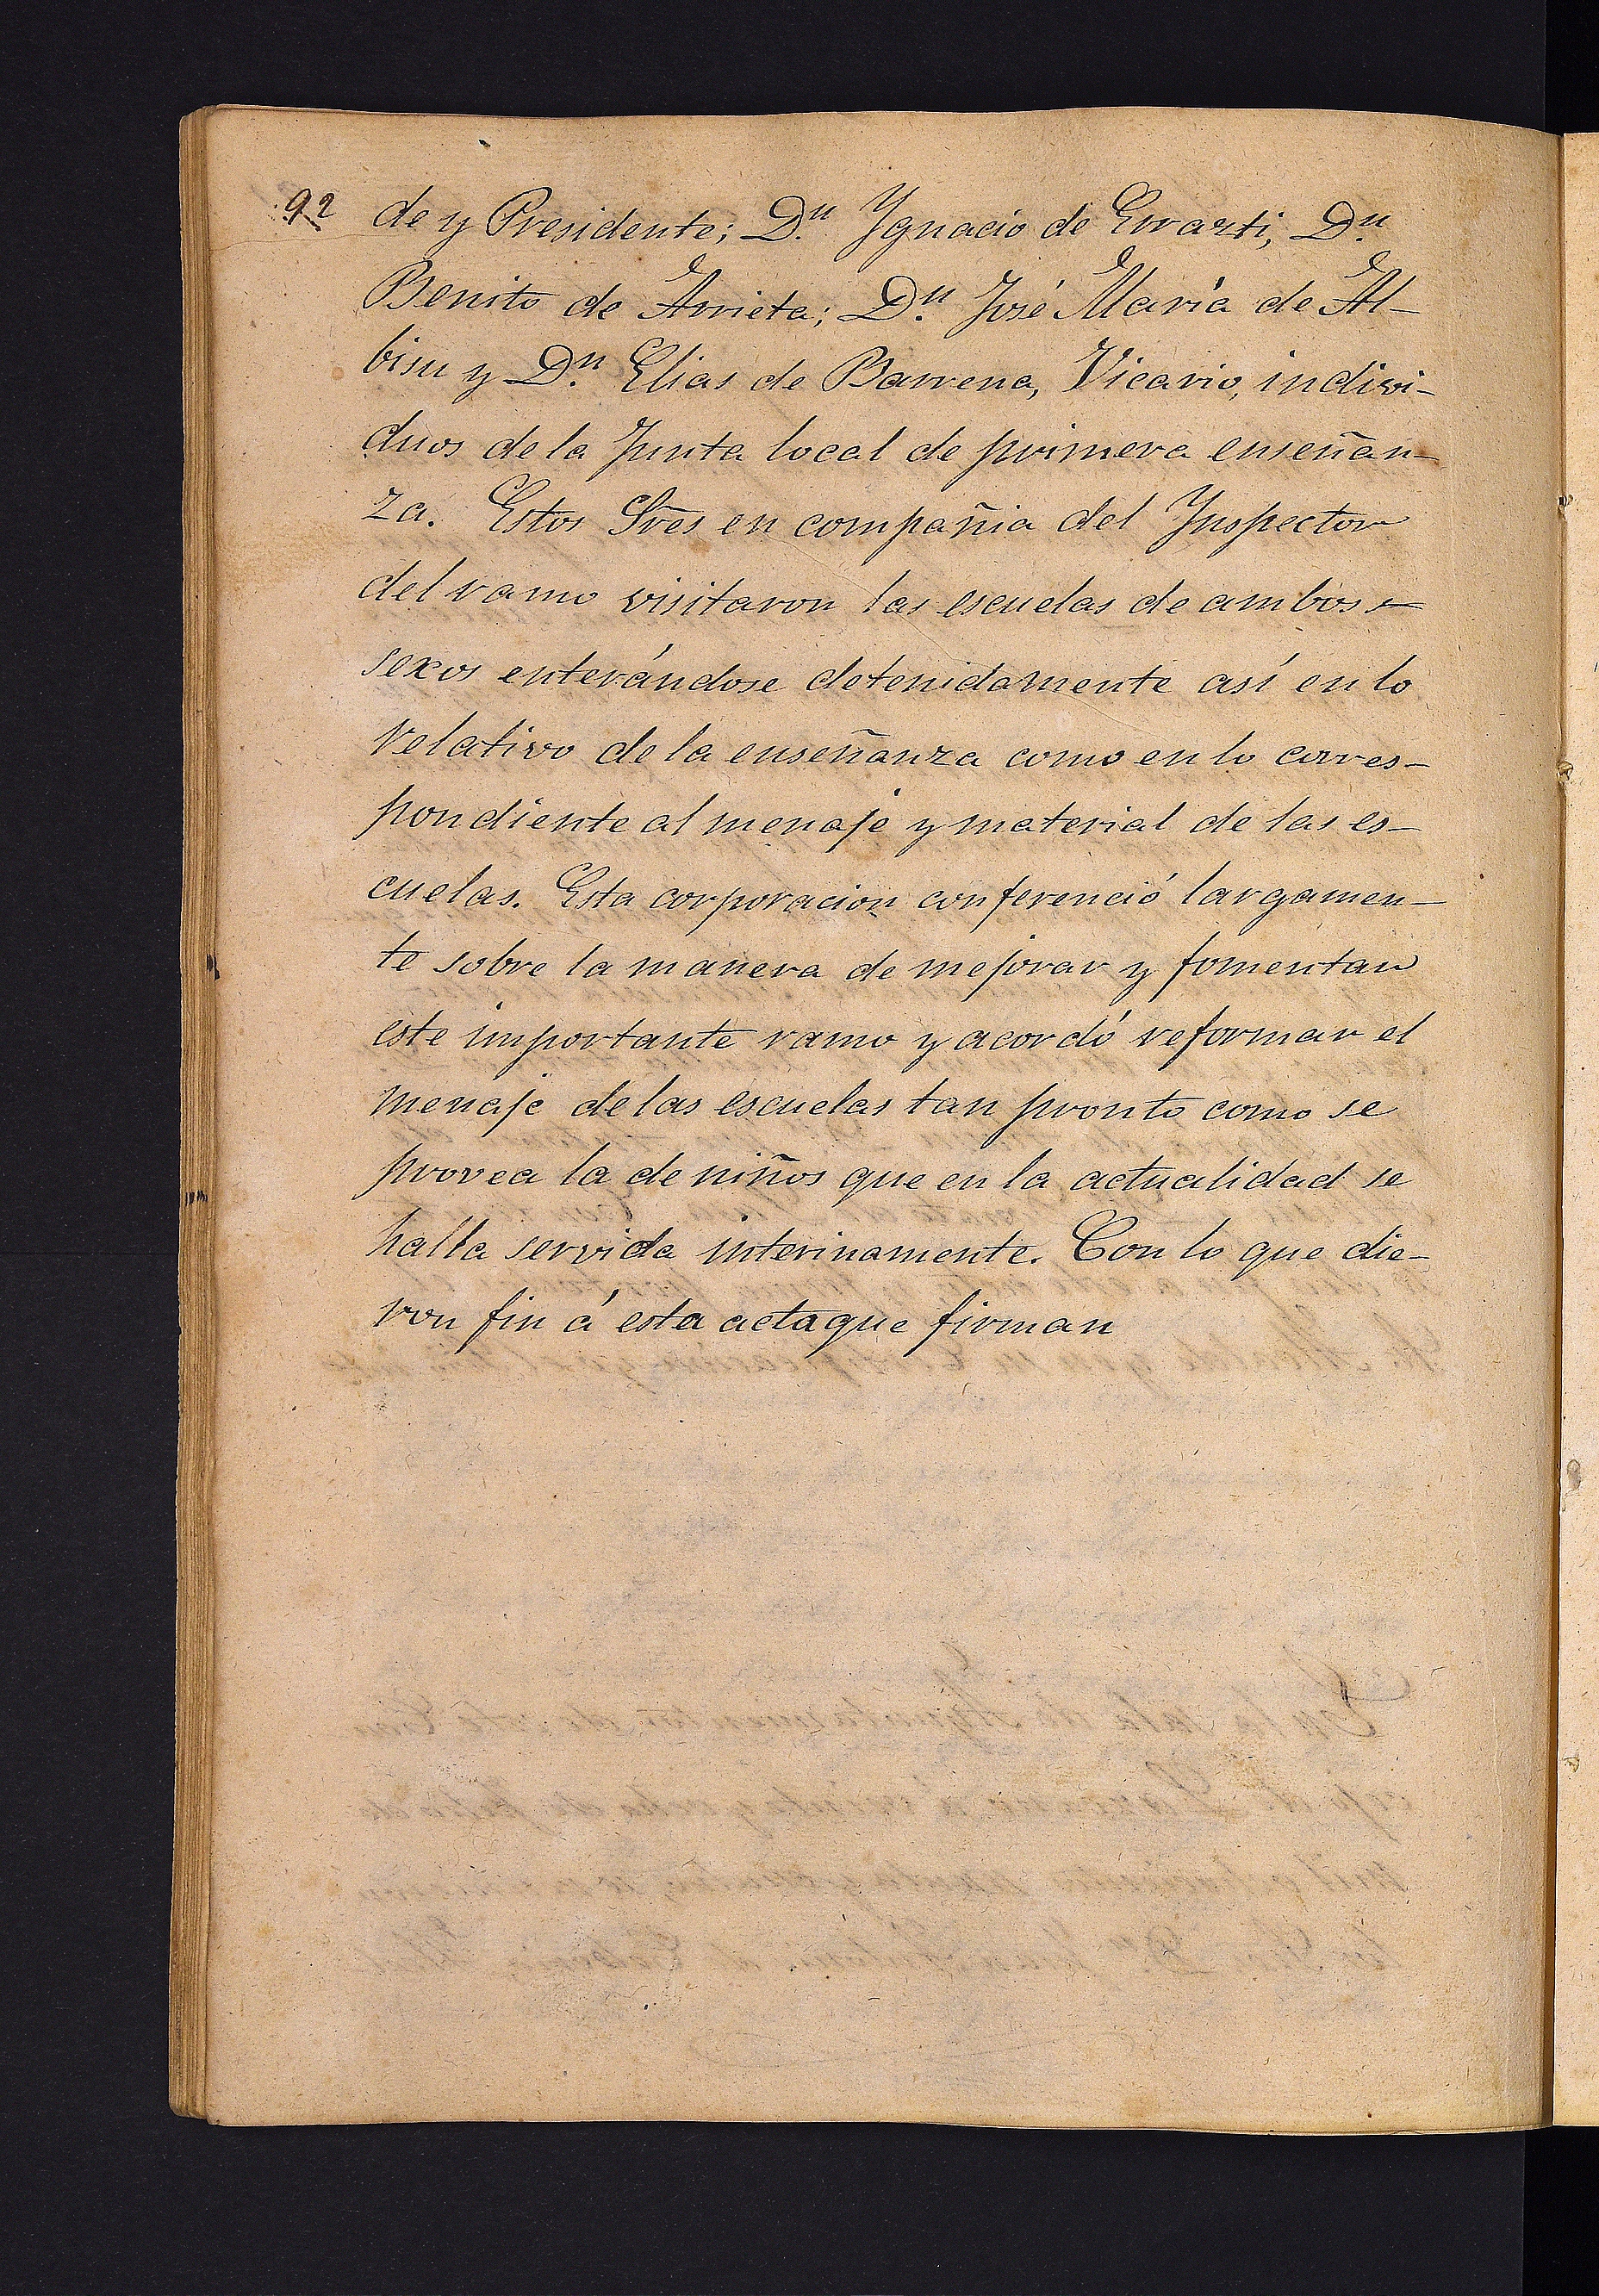 92
de y Presidente; D.n Ygnacio de Errazti, D.n
Benito de Arrieta; D.n José María de Al-
bisu y D.n Elias de Barrena, Vicario, indivi-
duos de la Junta local de primera enseñan-
za. Estos Sres en compañia del Ynspector
del ramo visitaron las escuelas de ambos
sexos enterándose detenidamente así en lo
relativo de la enseñanza como en lo corres-
pondiente al menaje y material de las es-
cuelas. Esta corporacion conferenció largamen-
te sobre la manera de mejorar y fomentar
este importante ramo y acordó reformar el
menaje de las escuelas tan pronto como se
provea la de niños que en la actualidad se
halla servida interinamente. Con lo que die-
ron fin á esta acta que firman